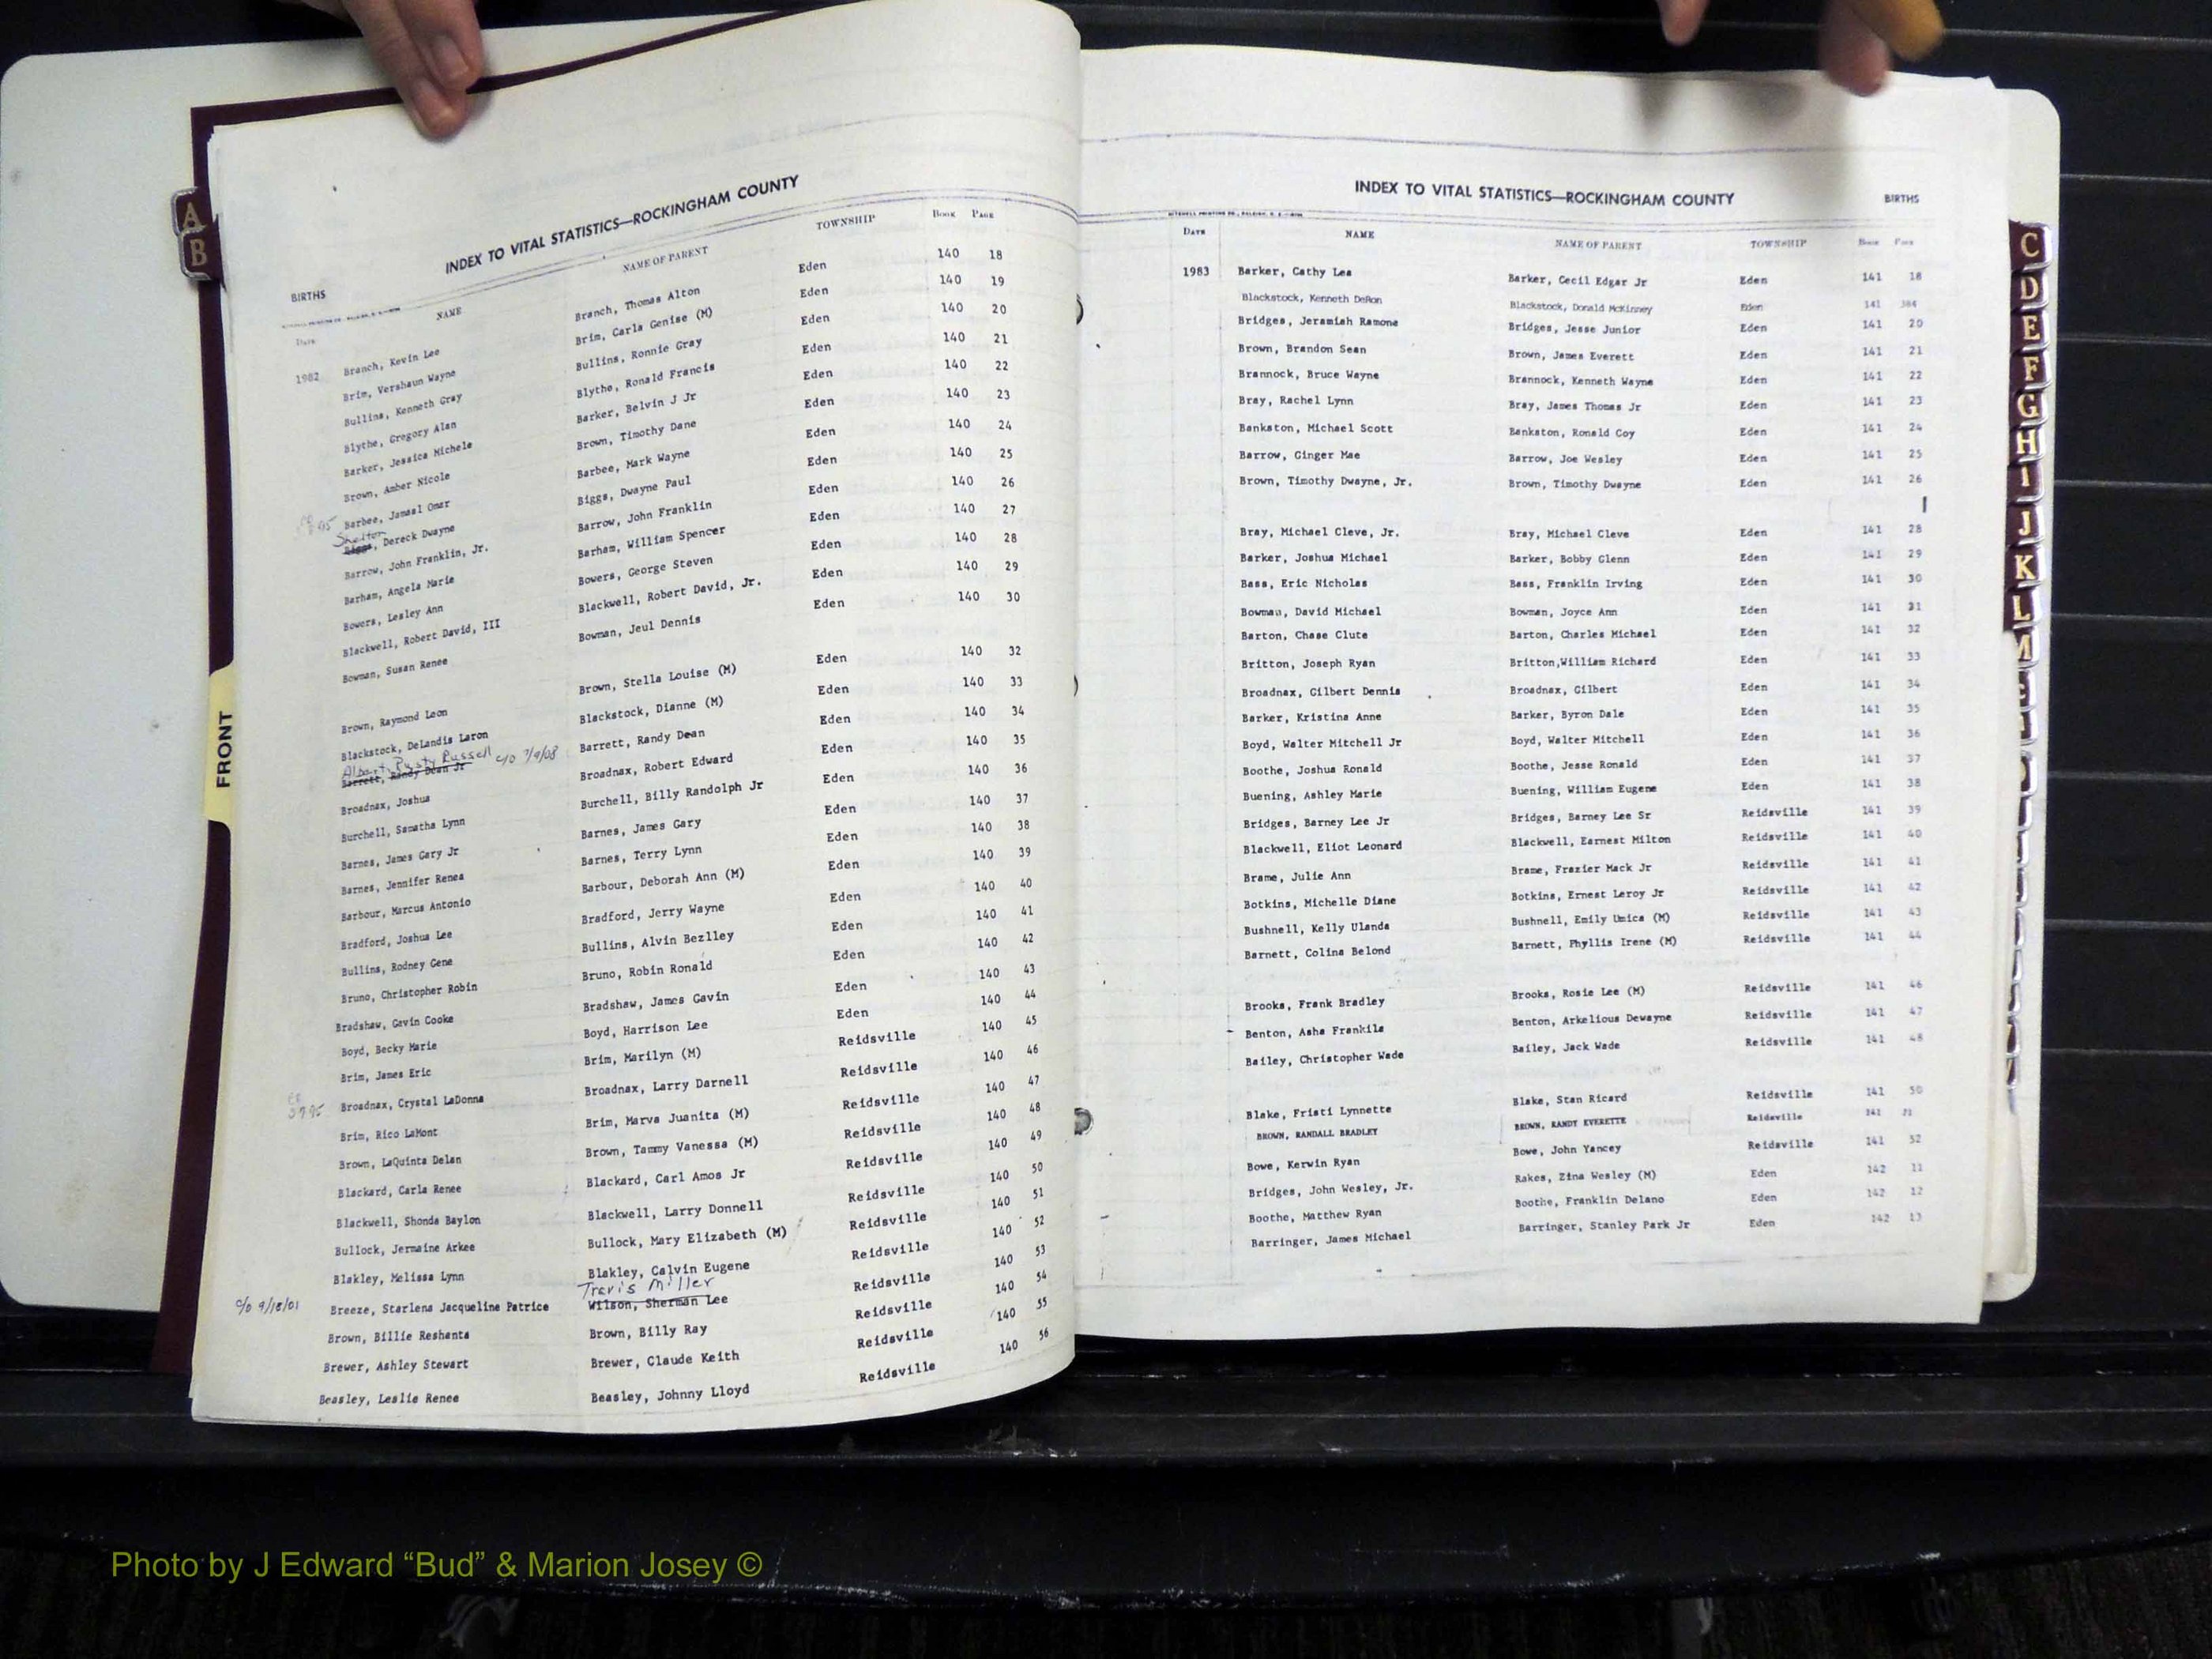 INDEX TO VITAL STATISTICS—ROCKINGHAM COUNTY
BIRTHS
Date NAME NAME OF PARENT TOWNSHIP Book Page
1982 Branch, Kevin Lee Branch, Thomas Alton Eden 140 18
Brim, Vershaun Wayne Brim, Carla Genise (M) Eden 140 19
Bullins, Kenneth Gray Bullins, Ronnie Gray Eden 140 20
Blythe, Gregory Alan Blythe, Ronald Francis Eden 140 21
Barker, Jessica Michele Barker, Belvin J Jr Eden 140 22
Brown, Amber Nicole Brown, Timothy Dane Eden 140 23
Barbee, Jamaal Omar Barbee, Mark Wayne Eden 140 24
Shelton
Biggs, Dereck Dwayne Biggs, Dwayne Paul Eden 140 25
Barrow, John Franklin, Jr. Barrow, John Franklin Eden 140 26
Barham, Angela Marie Barham, William Spencer Eden 140 27
Bowers, Lesley Ann Bowers, George Steven Eden 140 28
Blackwell, Robert David, III Blackwell, Robert David, Jr. Eden 140 29
Bowman, Susan Renee Bowman, Jeul Dennis Eden 140 30
Brown, Raymond Leon Brown, Stella Louise (M) Eden 140 32
Blackstock, DeLandis Laron Blackstock, Dianne (M) Eden 140 33
Albert, Rusty Russell c/o 7/9/08
Barrett, Randy Dean Jr Barrett, Randy Dean Eden 140 34
Broadnax, Joshua Broadnax, Robert Edward Eden 140 35
Burchell, Samatha Lynn Burchell, Billy Randolph Jr Eden 140 36
Barnes, James Gary Jr Barnes, James Gary Eden 140 37
Barnes, Jennifer Renea Barnes, Terry Lynn Eden 140 38
Barbour, Marcus Antonio Barbour, Deborah Ann (M) Eden 140 39
Bradford, Joshua Lee Bradford, Jerry Wayne Eden 140 40
Bullins, Rodney Gene Bullins, Alvin Bezlley Eden 140 41
Bruno, Christopher Robin Bruno, Robin Ronald Eden 140 42
Bradshaw, Gavin Cooke Bradshaw, James Gavin Eden 140 43
Boyd, Becky Marie Boyd, Harrison Lee Eden 140 44
Brim, James Eric Brim, Marilyn (M) Reidsville 140 45
Broadnax, Crystal LaDonna Broadnax, Larry Darnell Reidsville 140 46
Brim, Rico LaMont Brim, Marva Juanita (M) Reidsville 140 47
Brown, LaQuinta Delan Brown, Tammy Vanessa (M) Reidsville 140 48
Blackard, Carla Renee Blackard, Carl Amos Jr Reidsville 140 49
Blackwell, Shonda Baylon Blackwell, Larry Donnell Reidsville 140 50
Bullock, Jermaine Arkee Bullock, Mary Elizabeth (M) Reidsville 140 51
Blakley, Melissa Lynn Blakley, Calvin Eugene Reidsville 140 52
Travis Miller
c/o 9/18/01 Breeze, Starlena Jacqueline Patrice Wilson, Sherman Lee Reidsville 140 53
Brown, Billie Reshanta Brown, Billy Ray Reidsville 140 54
Brewer, Ashley Stewart Brewer, Claude Keith Reidsville 140 55
Beasley, Leslie Renee Beasley, Johnny Lloyd Reidsville 140 56
FRONT
A
B
INDEX TO VITAL STATISTICS—ROCKINGHAM COUNTY BIRTHS
Date NAME NAME OF PARENT TOWNSHIP Book Page
1983 Barker, Cathy Lea Barker, Cecil Edgar Jr Eden 141 18
Blackstock, Kenneth DeRon Blackstock, Donald McKinney Eden 141
Bridges, Jeramiah Ramone Bridges, Jesse Junior Eden 141 20
Brown, Brandon Sean Brown, James Everett Eden 141 21
Brannock, Bruce Wayne Brannock, Kenneth Wayne Eden 141 22
Bray, Rachel Lynn Bray, James Thomas Jr Eden 141 23
Bankston, Michael Scott Bankston, Ronald Coy Eden 141 24
Barrow, Ginger Mae Barrow, Joe Wesley Eden 141 25
Brown, Timothy Dwayne, Jr. Brown, Timothy Dwayne Eden 141 26
Bray, Michael Cleve, Jr. Bray, Michael Cleve Eden 141 28
Barker, Joshua Michael Barker, Bobby Glenn Eden 141 29
Bass, Eric Nicholas Bass, Franklin Irving Eden 141 30
Bowman, David Michael Bowman, Joyce Ann Eden 141 31
Barton, Chase Clute Barton, Charles Michael Eden 141 32
Britton, Joseph Ryan Britton,William Richard Eden 141 33
Broadnax, Gilbert Dennis Broadnax, Gilbert Eden 141 34
Barker, Kristina Anne Barker, Byron Dale Eden 141 35
Boyd, Walter Mitchell Jr Boyd, Walter Mitchell Eden 141 36
Boothe, Joshua Ronald Boothe, Jesse Ronald Eden 141 37
Buening, Ashley Marie Buening, William Eugene Eden 141 38
Bridges, Barney Lee Jr Bridges, Barney Lee Sr Reidsville 141 39
Blackwell, Eliot Leonard Blackwell, Earnest Milton Reidsville 141 40
Brame, Julie Ann Brame, Frazier Mack Jr Reidsville 141 41
Botkins, Michelle Diane Botkins, Ernest Leroy Jr Reidsville 141 42
Bushnell, Kelly Ulanda Bushnell, Emily Umica (M) Reidsville 141 43
Barnett, Colina Belond Barnett, Phyllis Irene (M) Reidsville 141 44
Brooks, Frank Bradley Brooks, Rosie Lee (M) Reidsville 141 46
Benton, Asha Frankila Benton, Arkelious Dewayne Reidsville 141 47
Bailey, Christopher Wade Bailey, Jack Wade Reidsville 141 48
Blake, Fristi Lynnette Blake, Stan Ricard Reidsville 141 50
BROWN, RANDALL BRADLEY BROWN, RANDY EVERETTE Reidsville 141
Bowe, Kerwin Ryan Bowe, John Yancey Reidsville 141 52
Bridges, John Wesley, Jr. Rakes, Zina Wesley (M) Eden 142 11
Boothe, Matthew Ryan Boothe, Franklin Delano Eden 142 12
Barringer, James Michael Barringer, Stanley Park Jr Eden 142 13
C
D
E
F
G
H
I
J
K
L
M
Photo by J Edward “Bud” & Marion Josey ©